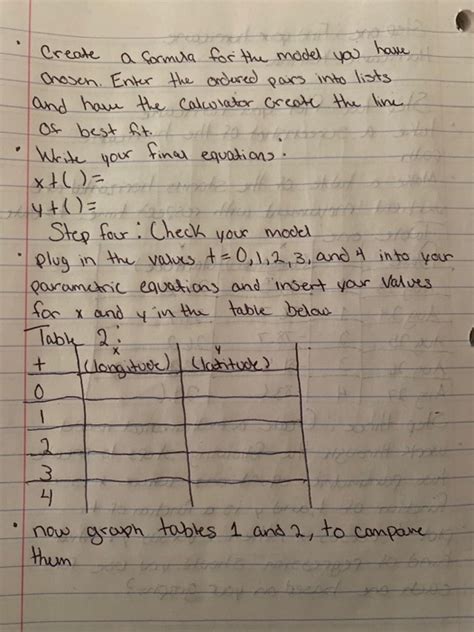 • Create a formula for the model you have
chosen. Enter the ordered pairs into lists
and have the calculator create the line
of best fit.
• Write your final equations:
xt( )=
yt( )=
Step four: Check your model
• plug in the values t=0,1,2,3, and 4 into your
parametric equations and insert your values
for x and y in the table below
Table 2:
t x (longitude) y (latitude)
0
1
2
3
4
• now graph tables 1 and 2, to compare
them